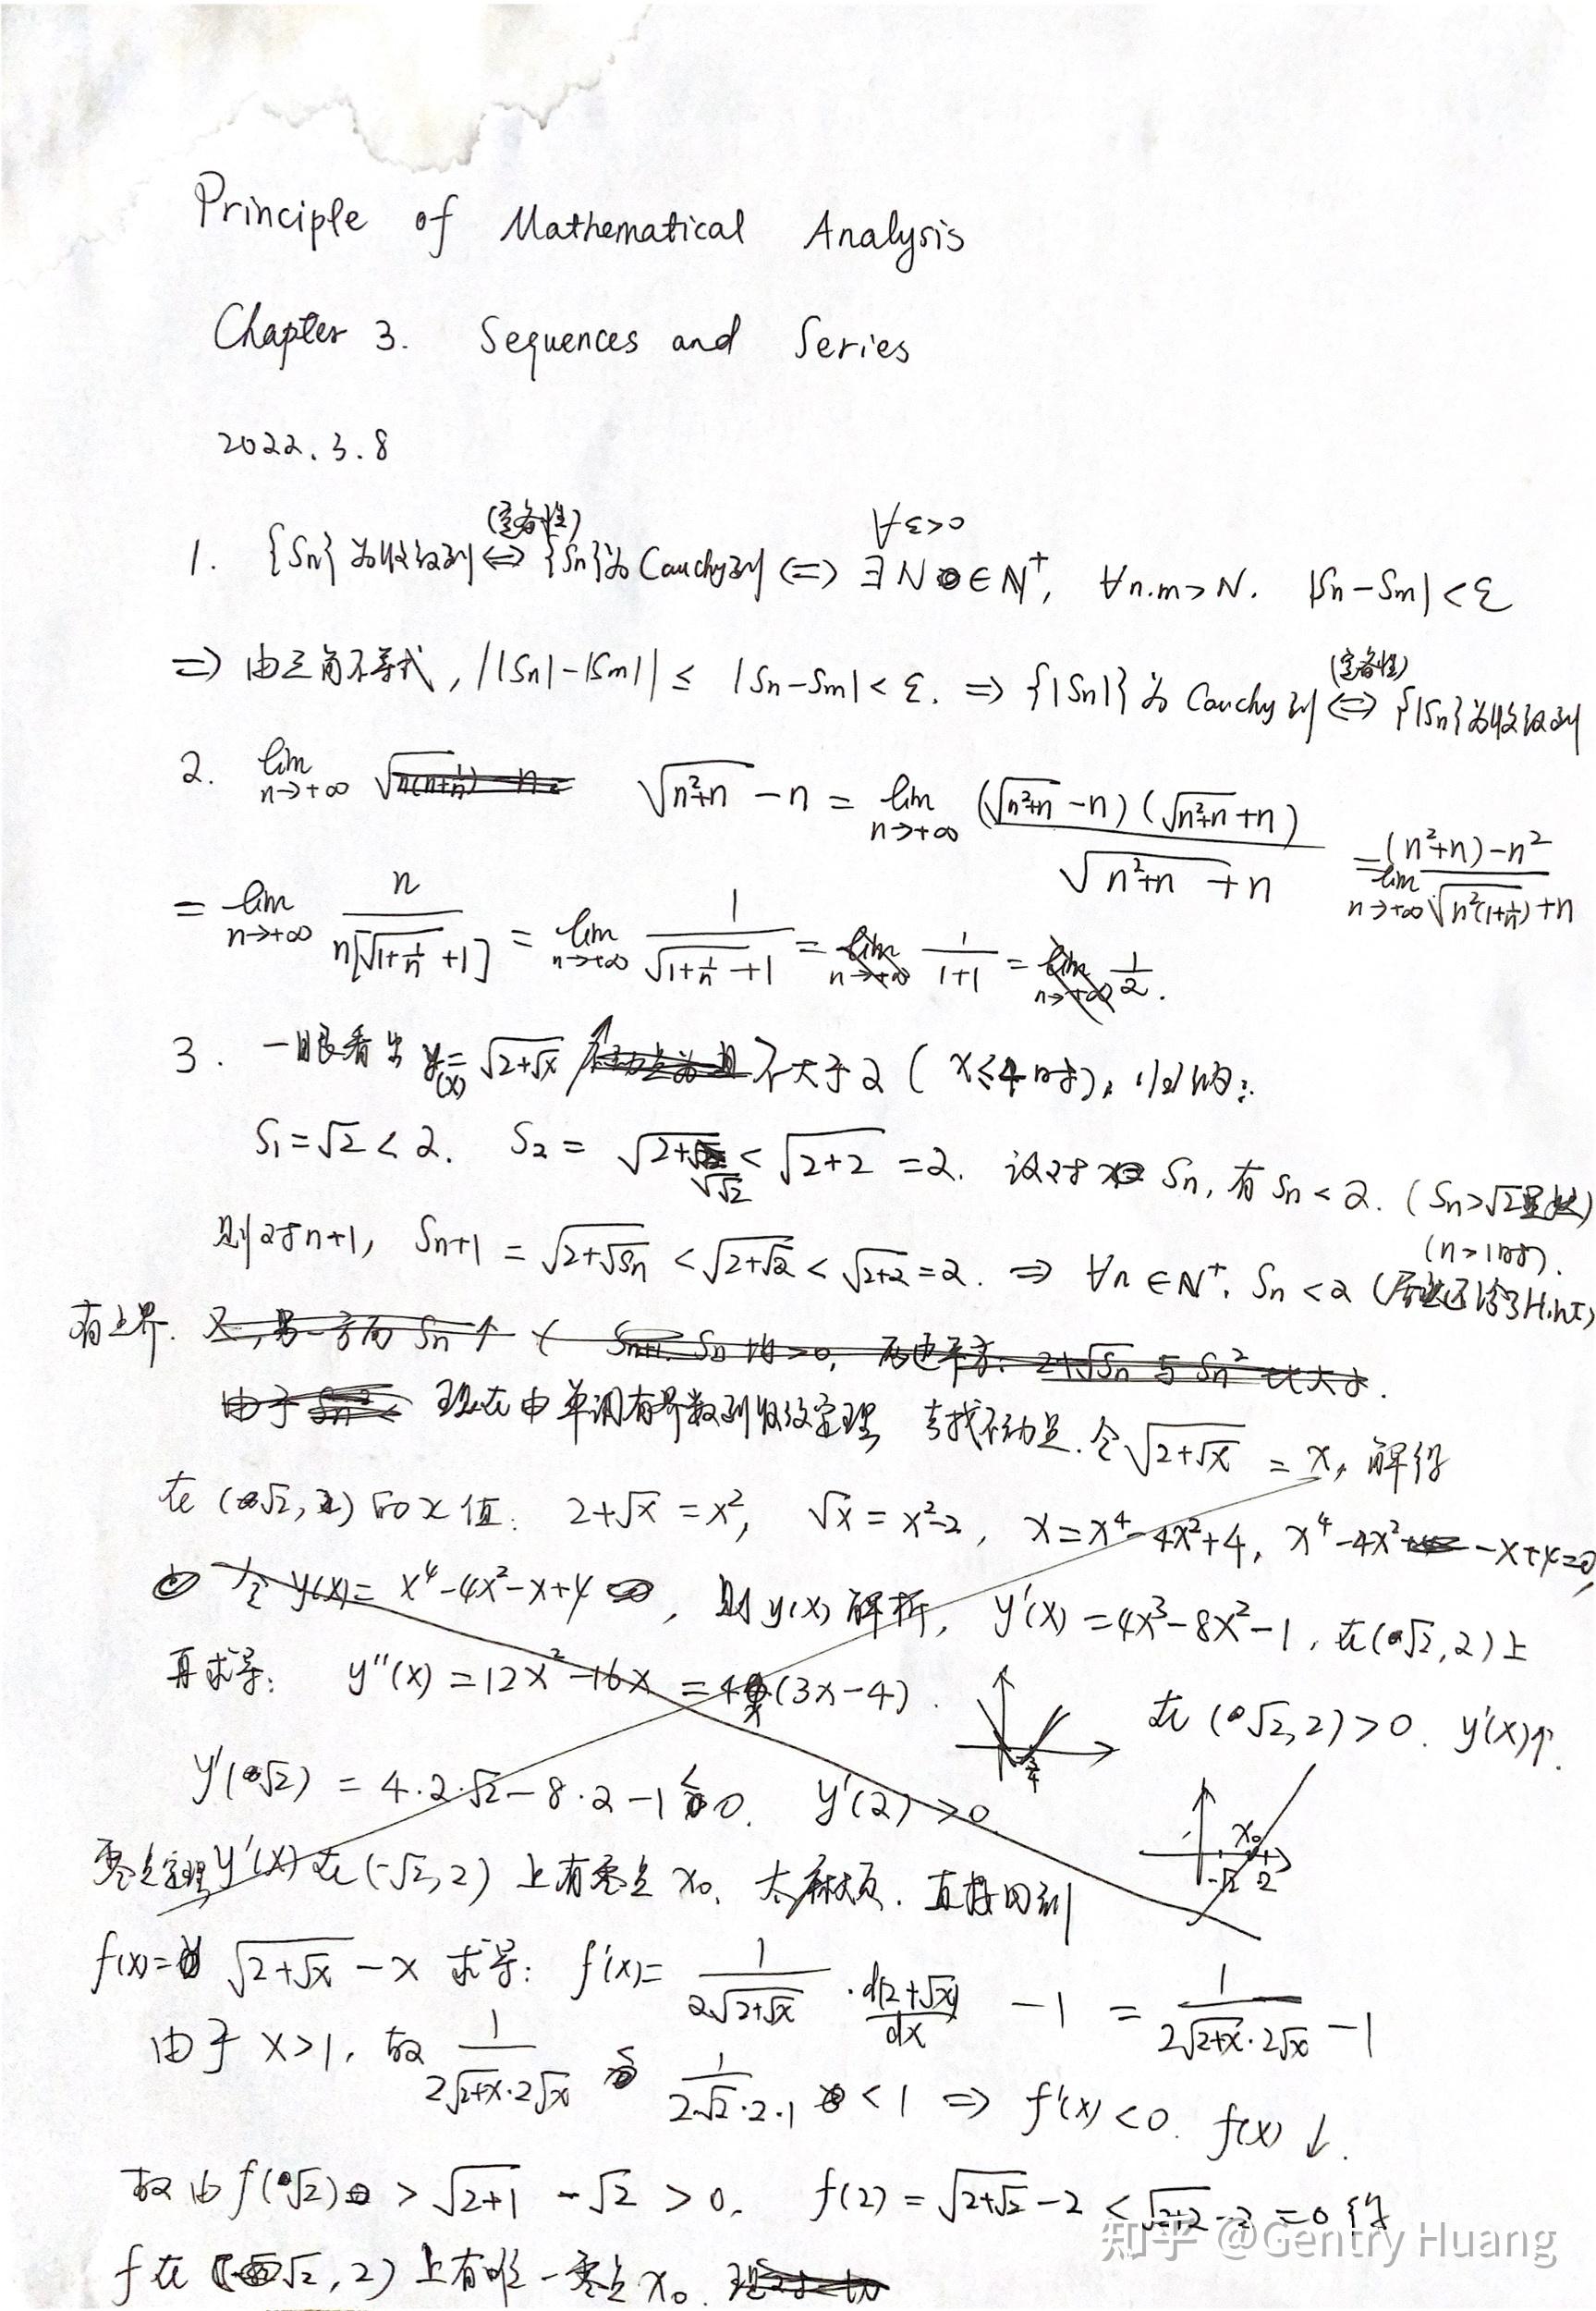 Principle of Mathematical Analysis
Chapter 3. Sequences and Series
2022.3.8
(完备性) ∀ε>0
1. {Sn}为收敛列 ⟺ {Sn}为Cauchy列 ⟺ ∃N∈N⁺, ∀n.m>N. |Sn-Sm|<ε
(完备性)
⇒ 由三角不等式, ||Sn|-|Sm|| ≤ |Sn-Sm|<ε. ⇒ {|Sn|}为Cauchy列 ⟺ {|Sn|}为收敛列
2. lim n→+∞ √(n²+n) - n = lim n→+∞ (√(n²+n) - n)(√(n²+n)+n) / (√(n²+n) + n) = lim n→+∞ ((n²+n)-n²) / (√(n²(1+1/n))+n)
= lim n→+∞ n / (n[√(1+1/n)+1]) = lim n→+∞ 1 / (√(1+1/n)+1) = 1/(1+1) = 1/2.
3. 一眼看出 y(x)=√(2+√x) 不大于2 (x≤4时),
S₁=√2<2. S₂=√(2+√√2)<√(2+2)=2. 设对 Sn, 有Sn<2. (Sn>√2显然)
(n>1时).
则对n+1, Sn+1=√(2+√Sn)<√(2+√2)<√(2+2)=2. ⇒ ∀n∈N⁺. Sn<2
有上界.
现在由单调有界数列收敛定理, 去找不动点. 令√(2+√x) = x, 解得
在(√2, 2)的x值: 2+√x=x², √x=x²-2, x=x⁴-4x²+4, x⁴-4x²-x+4=0,
令y(x)=x⁴-4x²-x+4, 则y(x)解析, y'(x)=4x³-8x²-1, 在(√2,2)上
再求导: y''(x)=12x²-16x=4x(3x-4). 在(√2,2)>0. y'(x)↑.
y'(√2)=4·2·√2-8·2-1<0. y'(2)>0.
零点定理y'(x)在(-√2,2)上有零点x₀. 太麻烦. 直接回到
x₀
-√2 2
f(x)=√(2+√x)-x 求导: f'(x)=1/(2√(2+√x))·d(2+√x)/dx - 1 = 1/(2√(2+x)·2√x) - 1
由于x>1, 故 1/(2√(2+x)·2√x) ≤ 1/(2√2·2·1) <1 ⇒ f'(x)<0. f(x)↓.
故由f(√2)>√(2+1)-√2>0, f(2)=√(2+√2)-2<√(2+2)-2=0得
f在(√2,2)上有唯一零点x₀.
知乎 @Gentry Huang